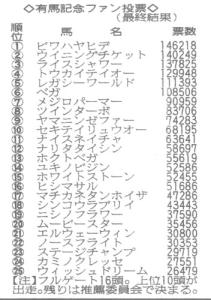 ◇有馬記念ファン投票◇
（最終結果）
順位 馬名 票数
① ビワハヤヒデ 146218
② ウイニングチケット 140249
③ ライスシャワー 137825
④ トウカイテイオー 129948
⑤ レガシーワールド 111393
⑥ ベガ 108506
⑦ メジロパーマー 90959
⑧ ツインターボ 83706
⑨ ヤマニンゼファー 74283
⑩ セキテイリュウオー 68195
⑪ ナイスネイチャ 63641
⑫ ナリタタイシン 58697
⑬ ホクトベガ 55619
⑭ ユキノビジン 52586
⑮ ホワイトストーン 52455
⑯ ヒシマサル 51686
⑰ マチカネタンホイザ 47286
⑱ シンコウラブリイ 43443
⑲ ニシノフラワー 37590
⑳ ムービースター 35456
エルウェーウィン 30800
ノースフライト 30353
ステージチャンプ 29719
カミノクレッセ 27551
ウィッシュドリーム 26479
【注】フルゲート16頭。上位10頭が
出走。残りは推薦委員会で決まる。